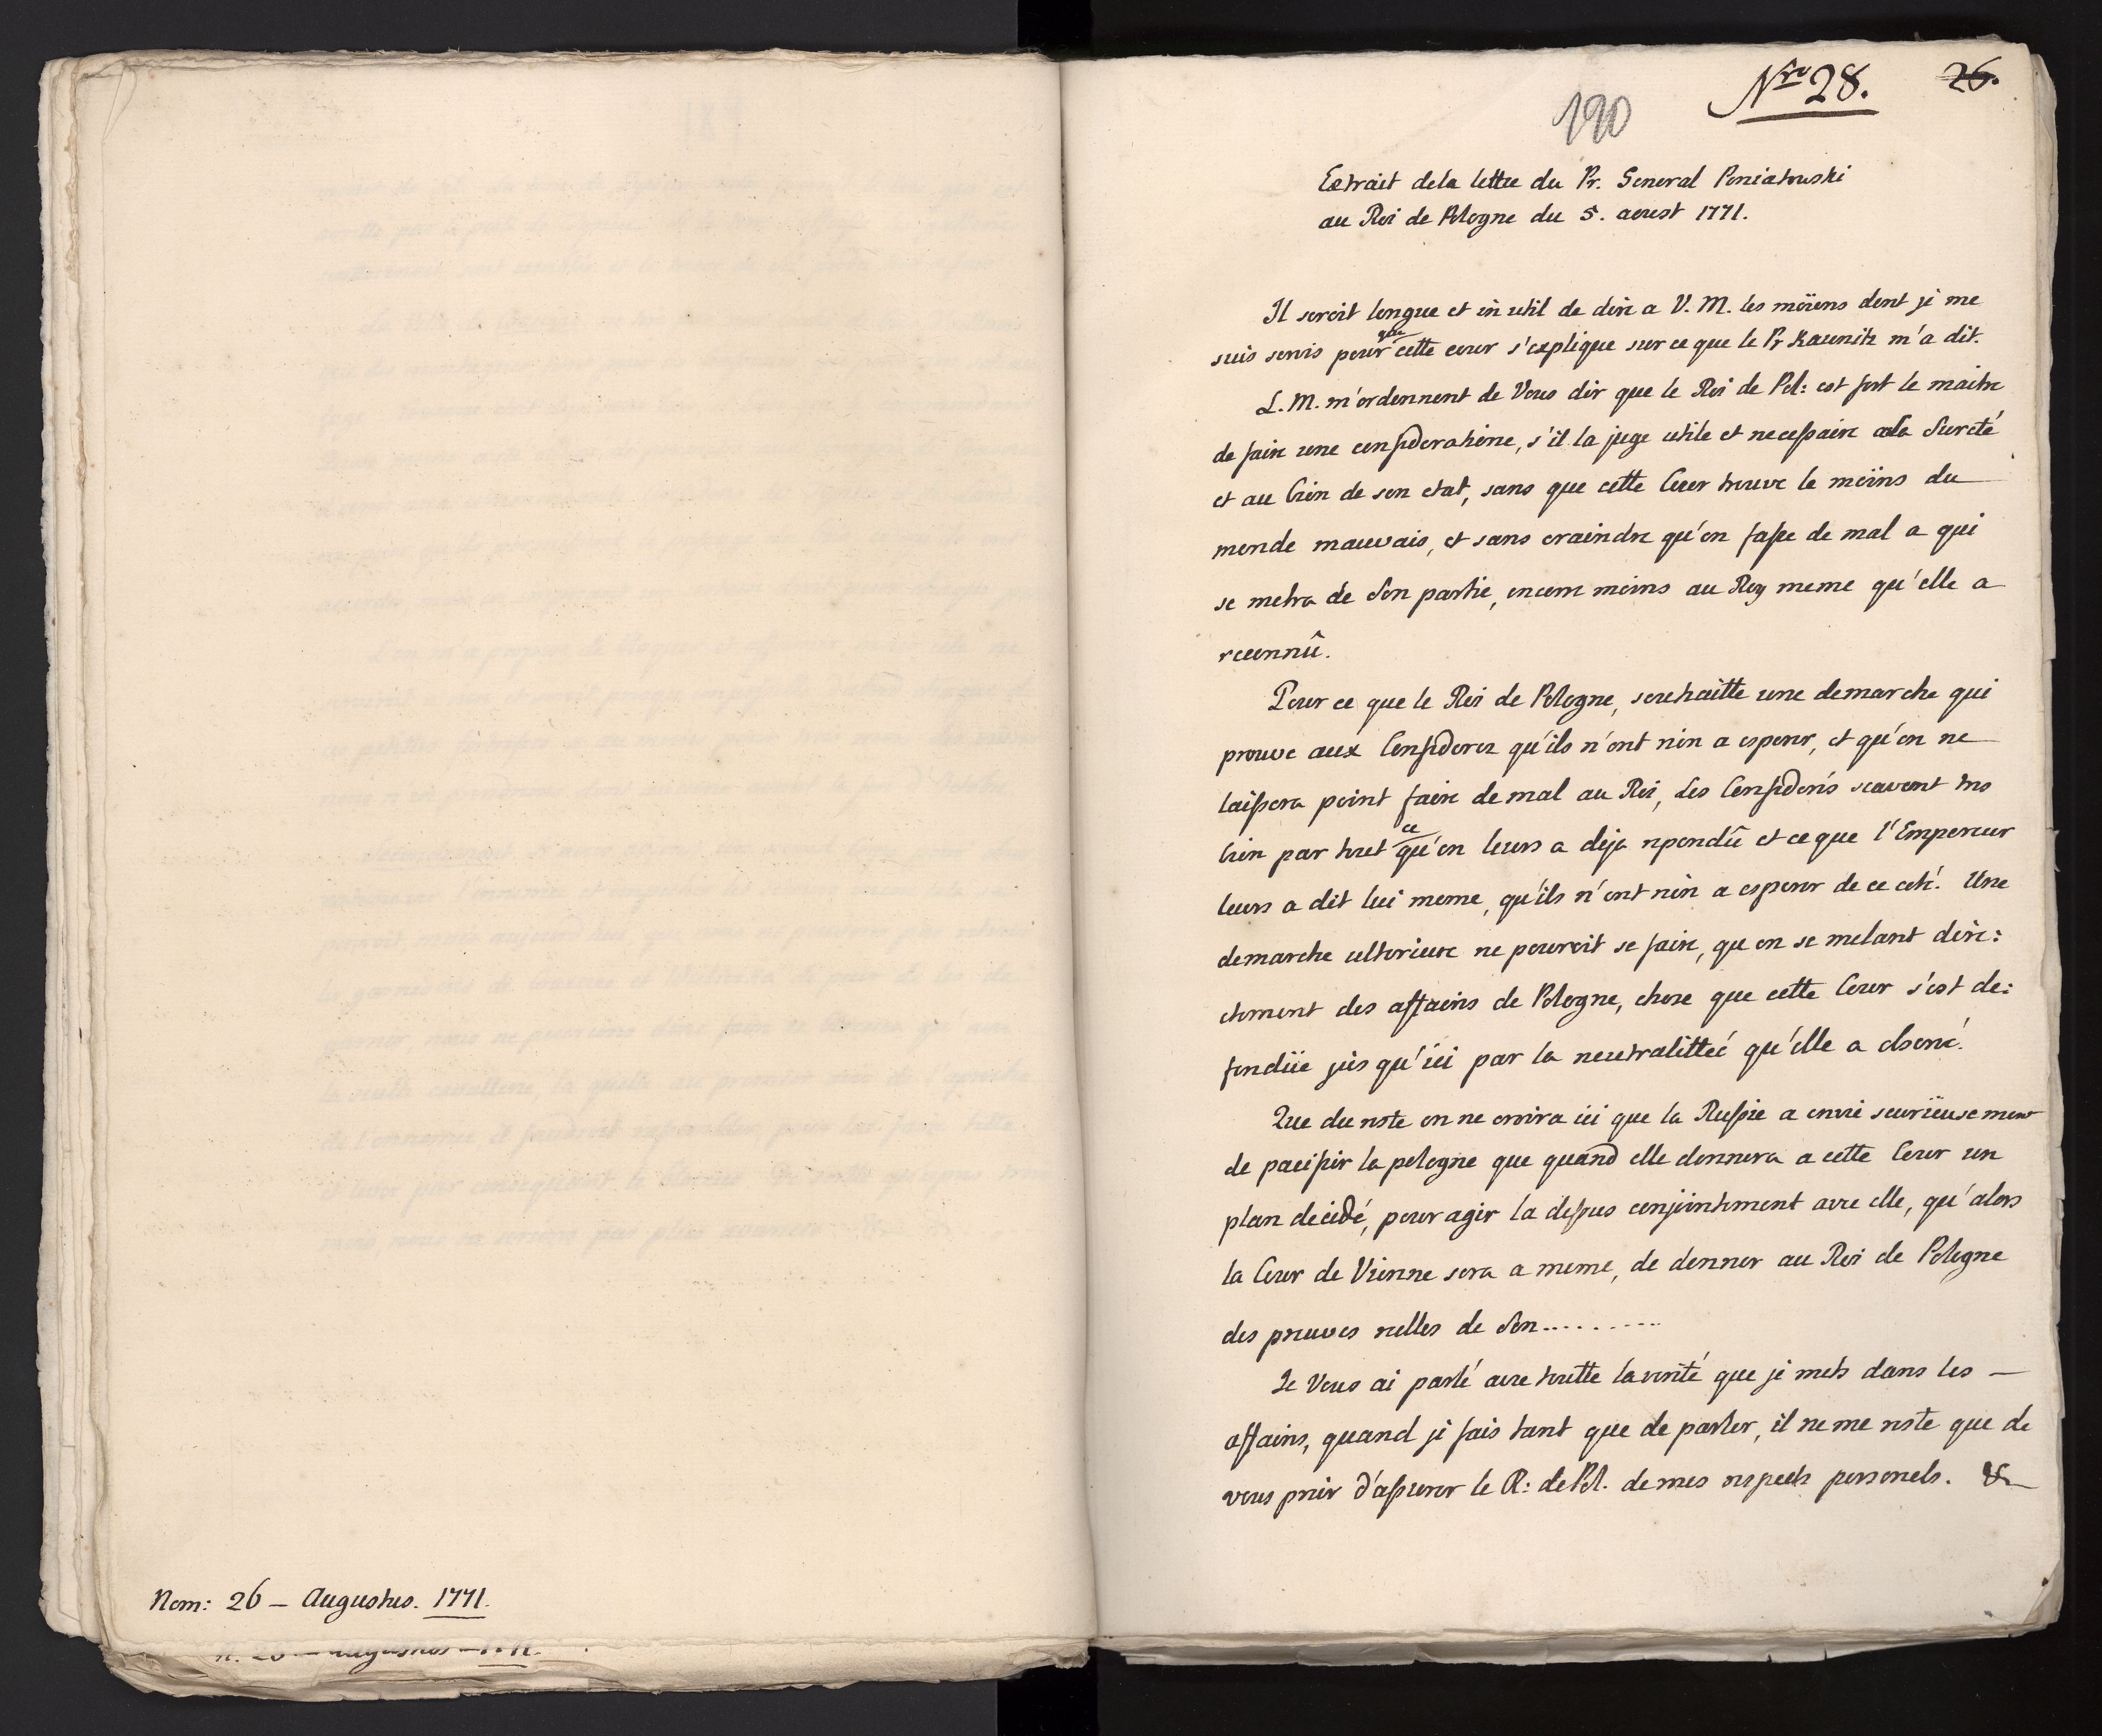 Nom: 26 – Augustus. 1771.
Nro 28.
26.
190
Extrait dela lettre du Pr. General Poniatowski
au Roi de Pologne du 5. aoust 1771.
Il seroit longue et inutil de dire a V. M. les moïens dont je me
suis servis pour que cette cour s'explique sur ce que le Pr Kaunitz m'a dit.
L. M. m'ordonnent de Vous dir que le Roi de Pol: est fort le maitre
de faire une confiderationne, s'il la juge utile et necessaire ala Sureté
et au bien de son etat, sans que cette Cour trouve le moïns du
monde mauvais, et sans craindre qu'on fasse de mal a qui
se metra de Son partie, encore moins au Roy meme qu'elle a
reconnû.
Pour ce que le Roi de Pologne, souhaitte une demarche qui
prouve aux Confiderez qu'ils n'ont rien a esperer, et qu'on ne
laissera point faire de mal au Roi, les Confiderés scavent tres
bien par tout ce qu'on leurs a deja repondû et ce que l'Empereur
leurs a dit lui meme, qu'ils n'ont rien a esperer de ce coté. Une
demarche ulterieure ne pouroit se faire, qu en se melant dire:
ctement des affaires de Pologne, chose que cette Cour s'est de:
fendüe jus qu'ici par la neutralitteé qu'elle a observé.
Que du reste on ne croira ici que la Russie a envie seurieusement
de pacifier la pologne que quand elle donnera a cette Cour un
plan decidé, pour agir la dessus conjointement avec elle, qu'alors
la Cour de Vienne sera a meme, de donner au Roi de Pologne
des preuves reelles de Son..........
Je Vous ai parlé avec toutte la verité que je mets dans les –
affaires, quand je fais tant que de parler, il ne me reste que de
vous prier d'assurer le R: de Pol. de mes respects personels. &c